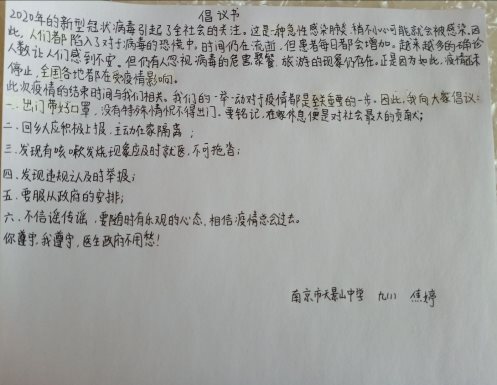 倡议书
2020年的新型冠状病毒引起了全社会的关注。这是一种急性感染肺炎,稍不小心可能就会被感染。因
此,人们都陷入了对于病毒的恐慌中。时间仍在流逝,但患者每日都会增加。越来越多的确诊
人数让人们感到不安。但仍有人忽视病毒的危害聚餐、旅游的现象仍存在。正是因为如此,疫情还未
停止,全国各地都在受疫情影响。
此次疫情的结束时间与我们相关。我们的一举一动对于疫情都是至关重要的一步。因此,我向大家倡议:
一.出门带好口罩,没有特殊情况不得出门。要铭记,在家休息便是对社会最大的贡献;
二.回乡人应积极上报,主动在家隔离;
三.发现有咳嗽发烧现象应及时就医,不可拖沓;
四.发现违规认及时举报;
五.要服从政府的安排;
六.不信谣传谣,要随时有乐观的心态,相信疫情总会过去。
你遵守,我遵守,医生政府不用愁!
南京市天景山中学 九(1) 焦婷